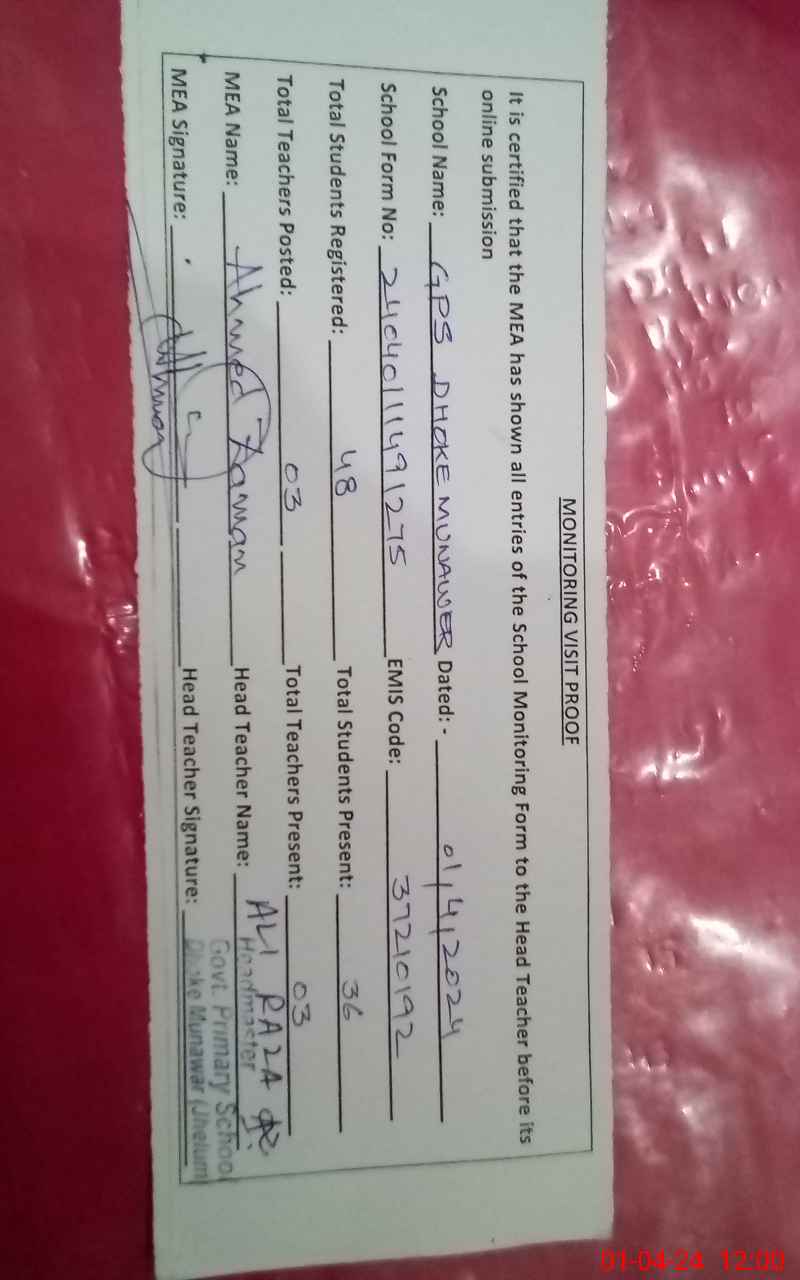 MONITORING VISIT PROOF
It is certified that the MEA has shown all entries of the School Monitoring Form to the Head Teacher before its
online submission
School Name: GPS DHOKE MUNAWER Dated: - 01/4/2024
School Form No: 24040111491275 EMIS Code: 37210192
Total Students Registered: 48 Total Students Present: 36
Total Teachers Posted: 03 Total Teachers Present: 03
MEA Name: Ahmed Zaman Head Teacher Name: ALI RAZA
MEA Signature: Head Teacher Signature:
Headmaster
Govt. Primary School
Dhoke Munawar (Jhelum)
01-04-24 12:00